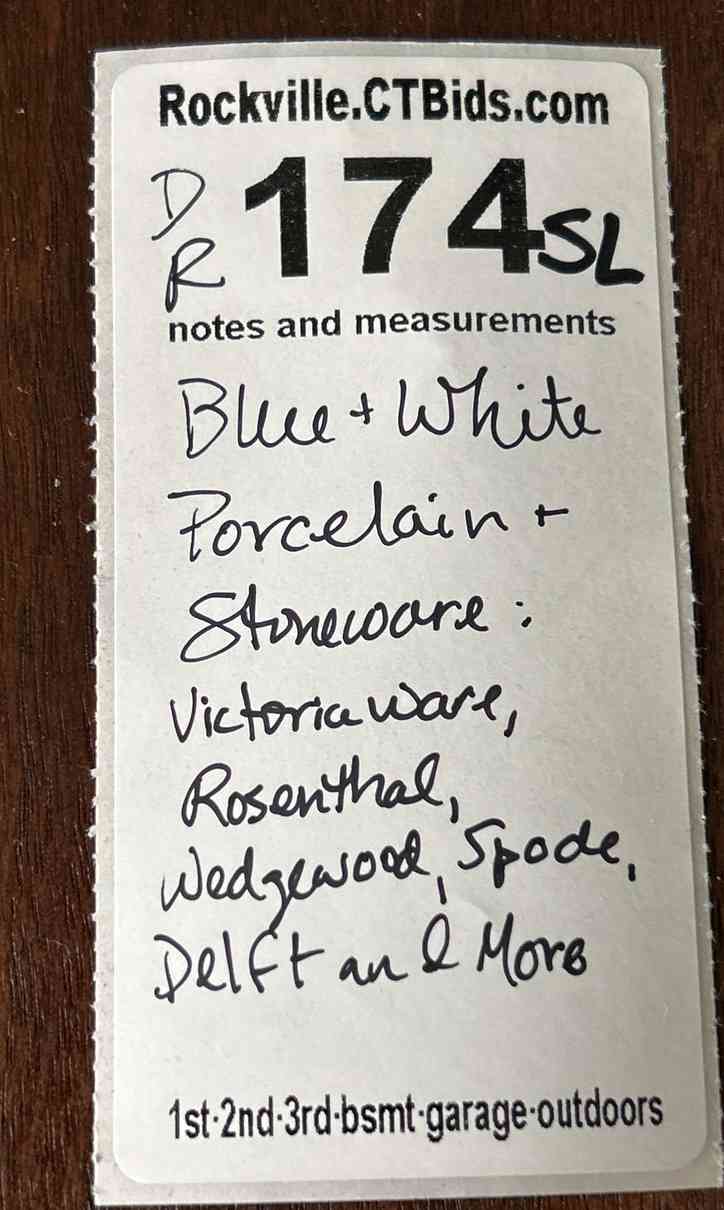 Rockville.CTBids.com
D
R 174SL
notes and measurements
Blue + White
Porcelain +
Stoneware :
Victoria Ware,
Rosenthal,
Wedgewood, Spode,
Delft and More
1st·2nd·3rd·bsmt·garage·outdoors